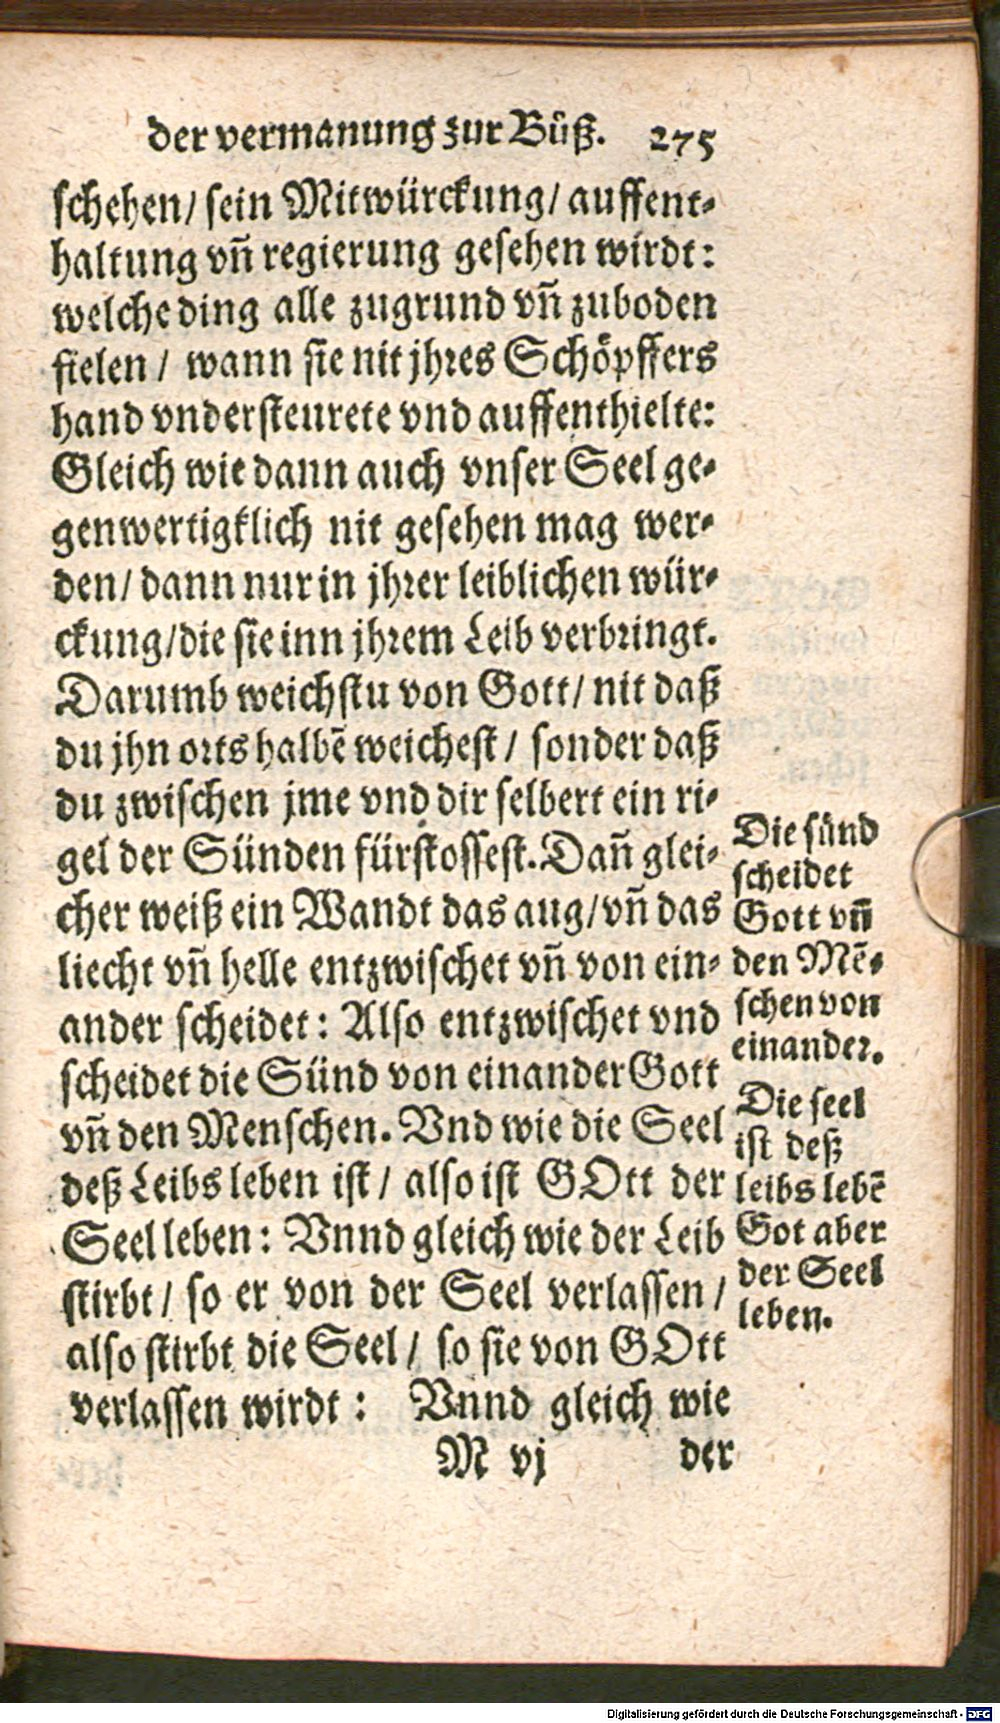 der vermanung zur Bůß. 275
schehen/ sein Mitwürckung/ auffent-
haltung vñ regierung gesehen wirdt:
welche ding alle zugrund vñ zuboden
fielen / wann sie nit jhres Schöpffers
hand vndersteurete vnd auffenthielte:
Gleich wie dann auch vnser Seel ge-
genwertigklich nit gesehen mag wer-
den/ dann nur in jhrer leiblichen wür-
ckung/die sie inn jhrem Leib verbringt.
Darumb weichstu von Gott/ nit daß
du jhn orts halbẽ weichest / sonder daß
du zwischen jme vnd dir selbert ein ri-
gel der Sünden fürstossest. Dañ glei-
cher weiß ein Wandt das aug/vñ das
liecht vñ helle entzwischet vñ von ein-
ander scheidet: Also entzwischet vnd
scheidet die Sünd von einander Gott
vñ den Menschen. Vnd wie die Seel
deß Leibs leben ist/ also ist GOtt der
Seel leben: Vnnd gleich wie der Leib
stirbt/ so er von der Seel verlassen /
also stirbt die Seel/ so sie von GOtt
verlassen wirdt: Vnnd gleich wie
M vj der
Die sünd
scheidet
Gott vñ
den Mẽ-
schen von
einander.
Die seel
ist deß
leibs lebẽ
Got aber
der Seel
leben.
Digitalisierung gefördert durch die Deutsche Forschungsgemeinschaft - DFG